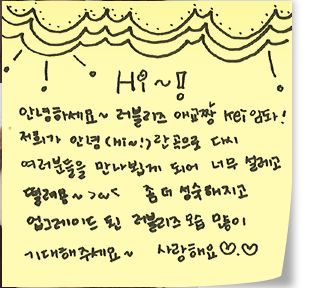 Hi~!!
안녕하세요~ 러블리즈 애교짱 Kei입니다!
저희가 안녕(Hi~!)란곡으로 다시
여러분들을 만나뵙게 되어 너무 설레고
떨려용~ >ω< 좀 더 성숙해지고
업그레이드 된 러블리즈 모습 많이
기대해주세요~ 사랑해요♡.♡